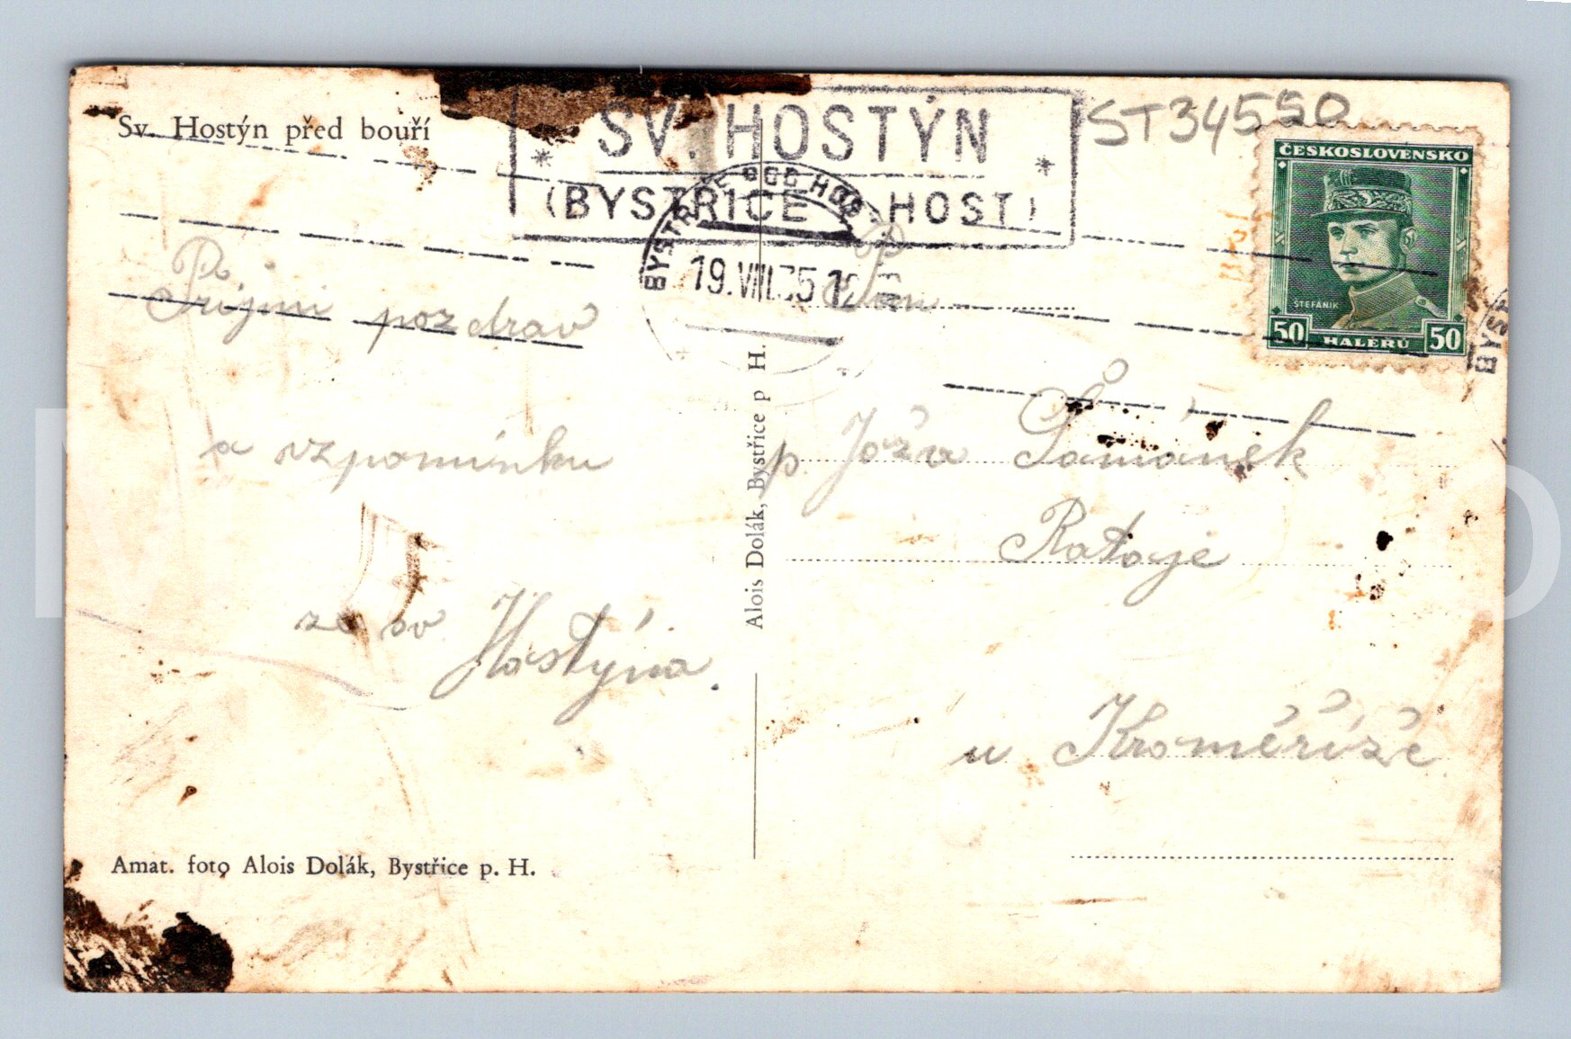 Sv. Hostýn před bouří
* SV. HOSTÝN *
(BYSTŘICE HOST)
ST34550
BYSTŘICE POD HOST
19.VIII.35
ČESKOSLOVENSKO
ŠTEFÁNIK
50 HALÉŘŮ 50
BYST
Přijmi pozdrav
a vzpomínku
ze sv Hostýna.
Alois Dolák, Bystřice p H.
p. Jóža Šamánek
Rataje
u Kroměříže
Amat. foto Alois Dolák, Bystřice p. H.